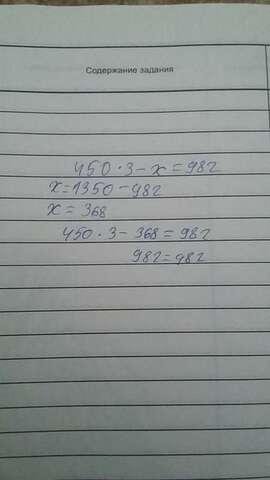 Содержание задания
450 · 3 - x = 982
x = 1350 - 982
x = 368
450 · 3 - 368 = 982
982 = 982